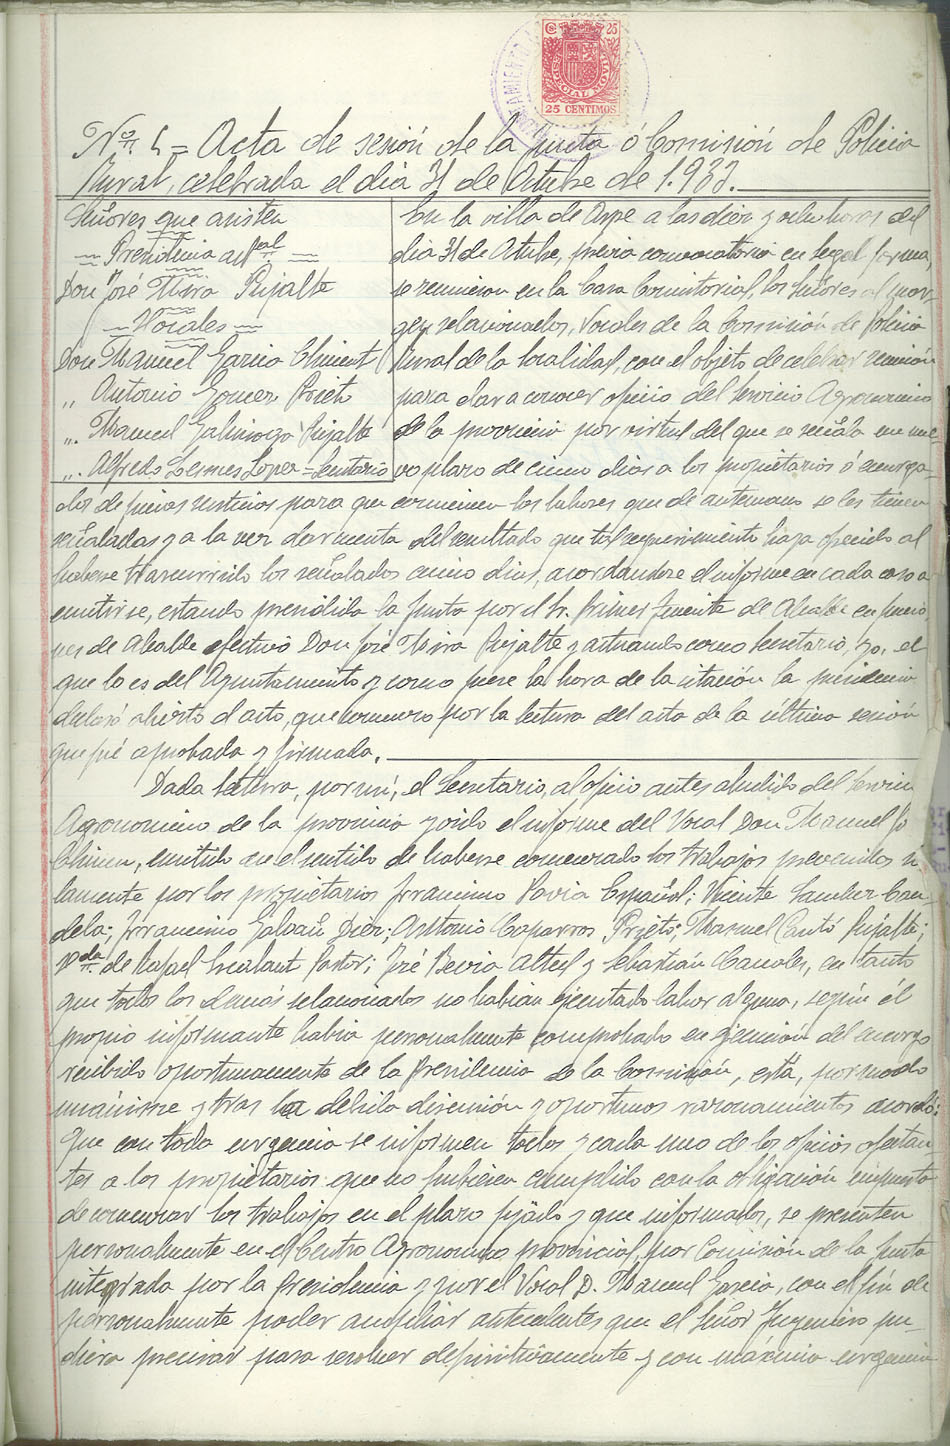 25
ESPECIAL MOVIL
25 CENTIMOS
Nº 4 = Acta de sesión de la junta ó Comisión de Policia
Rural, celebrada el dia 31 de Octubre de 1.933.
Señores que asisten
Presidencia actal
Don José Mira Pujalte
Vocales
Don Manuel Garcia Chinent
,, Antonio Gomez Prieto
,, Manuel Galinsoga Pujalte
,, Alfredo Lopez = Secretario
En la villa de Aspe a las diez y ocho horas del
dia 31 de Octubre, previa convocatoria en legal forma,
se reunieron en la Casa Consistorial, los Señores al mar-
gen relacionados, Vocales de la Comisión de Policia
Rural de la localidad, con el objeto de celebrar reunión
para dar a conocer oficio del Servicio Agronomico
de la provincia por virtud del que se señala un nue-
vo plazo de cinco dias a los propietarios ó encarga-
dos de fincas rusticas para que comiencen las labores que de antemano se les tienen
señaladas y a la vez dar cuenta del resultado que tal requerimiento haya ofrecido al
haberse transcurrido los señalados cinco dias, acordandose el informe en cada caso a
emitirse, estando presidida la Junta por el Sr. primer Teniente de Alcalde en funcio-
nes de Alcalde efectivo Don José Mira Pujalte y actuando como Secretario, yo, el
que lo es del Ayuntamiento y como fuere la hora de la citación la presidencia
declaró abierto el acto, que comenzó por la lectura del acta de la última sesión
que fué aprobada y firmada.
Dada lectura, por mi, el Secretario, al oficio antes aludido del Servicio
Agronomico de la provincia y oido el informe del Vocal Don Manuel Gª
Chinen, emitido en el sentido de haberse comenzado los trabajos prevenidos so-
lamente por los propietarios Geronimo Pavia Español; Vicente Sanchez Can-
dela; Geronimo Galvañ Diez; Antonio Caparros Prieto; Manuel Cantó Pujalte;
Vda de Rafael Pastor; José Pavia Alted y Sebastián Canales, en tanto
que todos los demás relacionados no habian ejecutado labor alguna, según él
propio informante habia personalmente comprobado en ejecución del encargo
recibido oportunamente de la Presidencia de la Comisión, está, por modo
unánime y tras la debida discusión y oportunos razonamientos acordó:
Que con toda urgencia se informen todos y cada uno de los oficios afectan-
tes a los propietarios que no hubieren cumplido con la obligación impuesta
de comenzar los trabajos en el plazo fijado y que informados, se presenten
personalmente en el Centro Agronomico provincial, por Comisión de la Junta
integrada por la Presidencia y por el Vocal D. Manuel Garcia, con el fin de
personalmente poder ampliar antecedentes que el Señor Ingeniero pu-
diera precisar para resolver definitivamente y con máxima urgencia